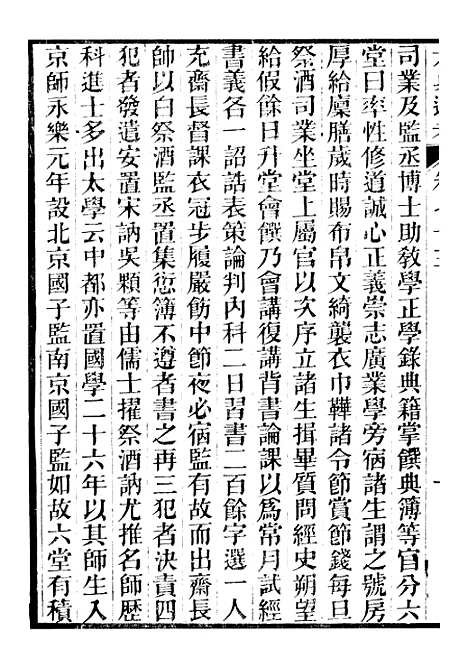 司業及監丞博士助敎學正學錄典籍掌饌典簿等官分六
堂曰率性修道誠心正義崇志廣業學旁宿諸生謂之號房
厚給廩膳歲時賜布帛文綺襲衣巾鞾諸令節賞節錢每旦
祭酒司業坐堂上屬官以次序立諸生揖畢質問經史朔望
給假餘日升堂會饌乃會講復講背書論課以爲常月試經
書義各一詔誥表策論判內科二日習書二百餘字選一人
充齋長督課衣冠步履嚴飭中節夜必宿監有故而出齋長
帥以白祭酒監丞置集愆簿不遵者書之再三犯者決責四
犯者發遣安置宋訥吳顆等由儒士擢祭酒訥尤推名師歷
科進士多出太學云中都亦置國學二十六年以其師生入
京師永樂元年設北京國子監南京國子監如故六堂有積